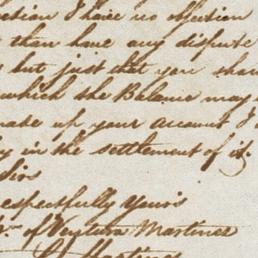 ection I have no objection
than have any dispute
but just that you shou
which the Balance may
made up your account I
in the settlement of it.
dirs
espectfully yours
of Ventura Martinez
Martinez